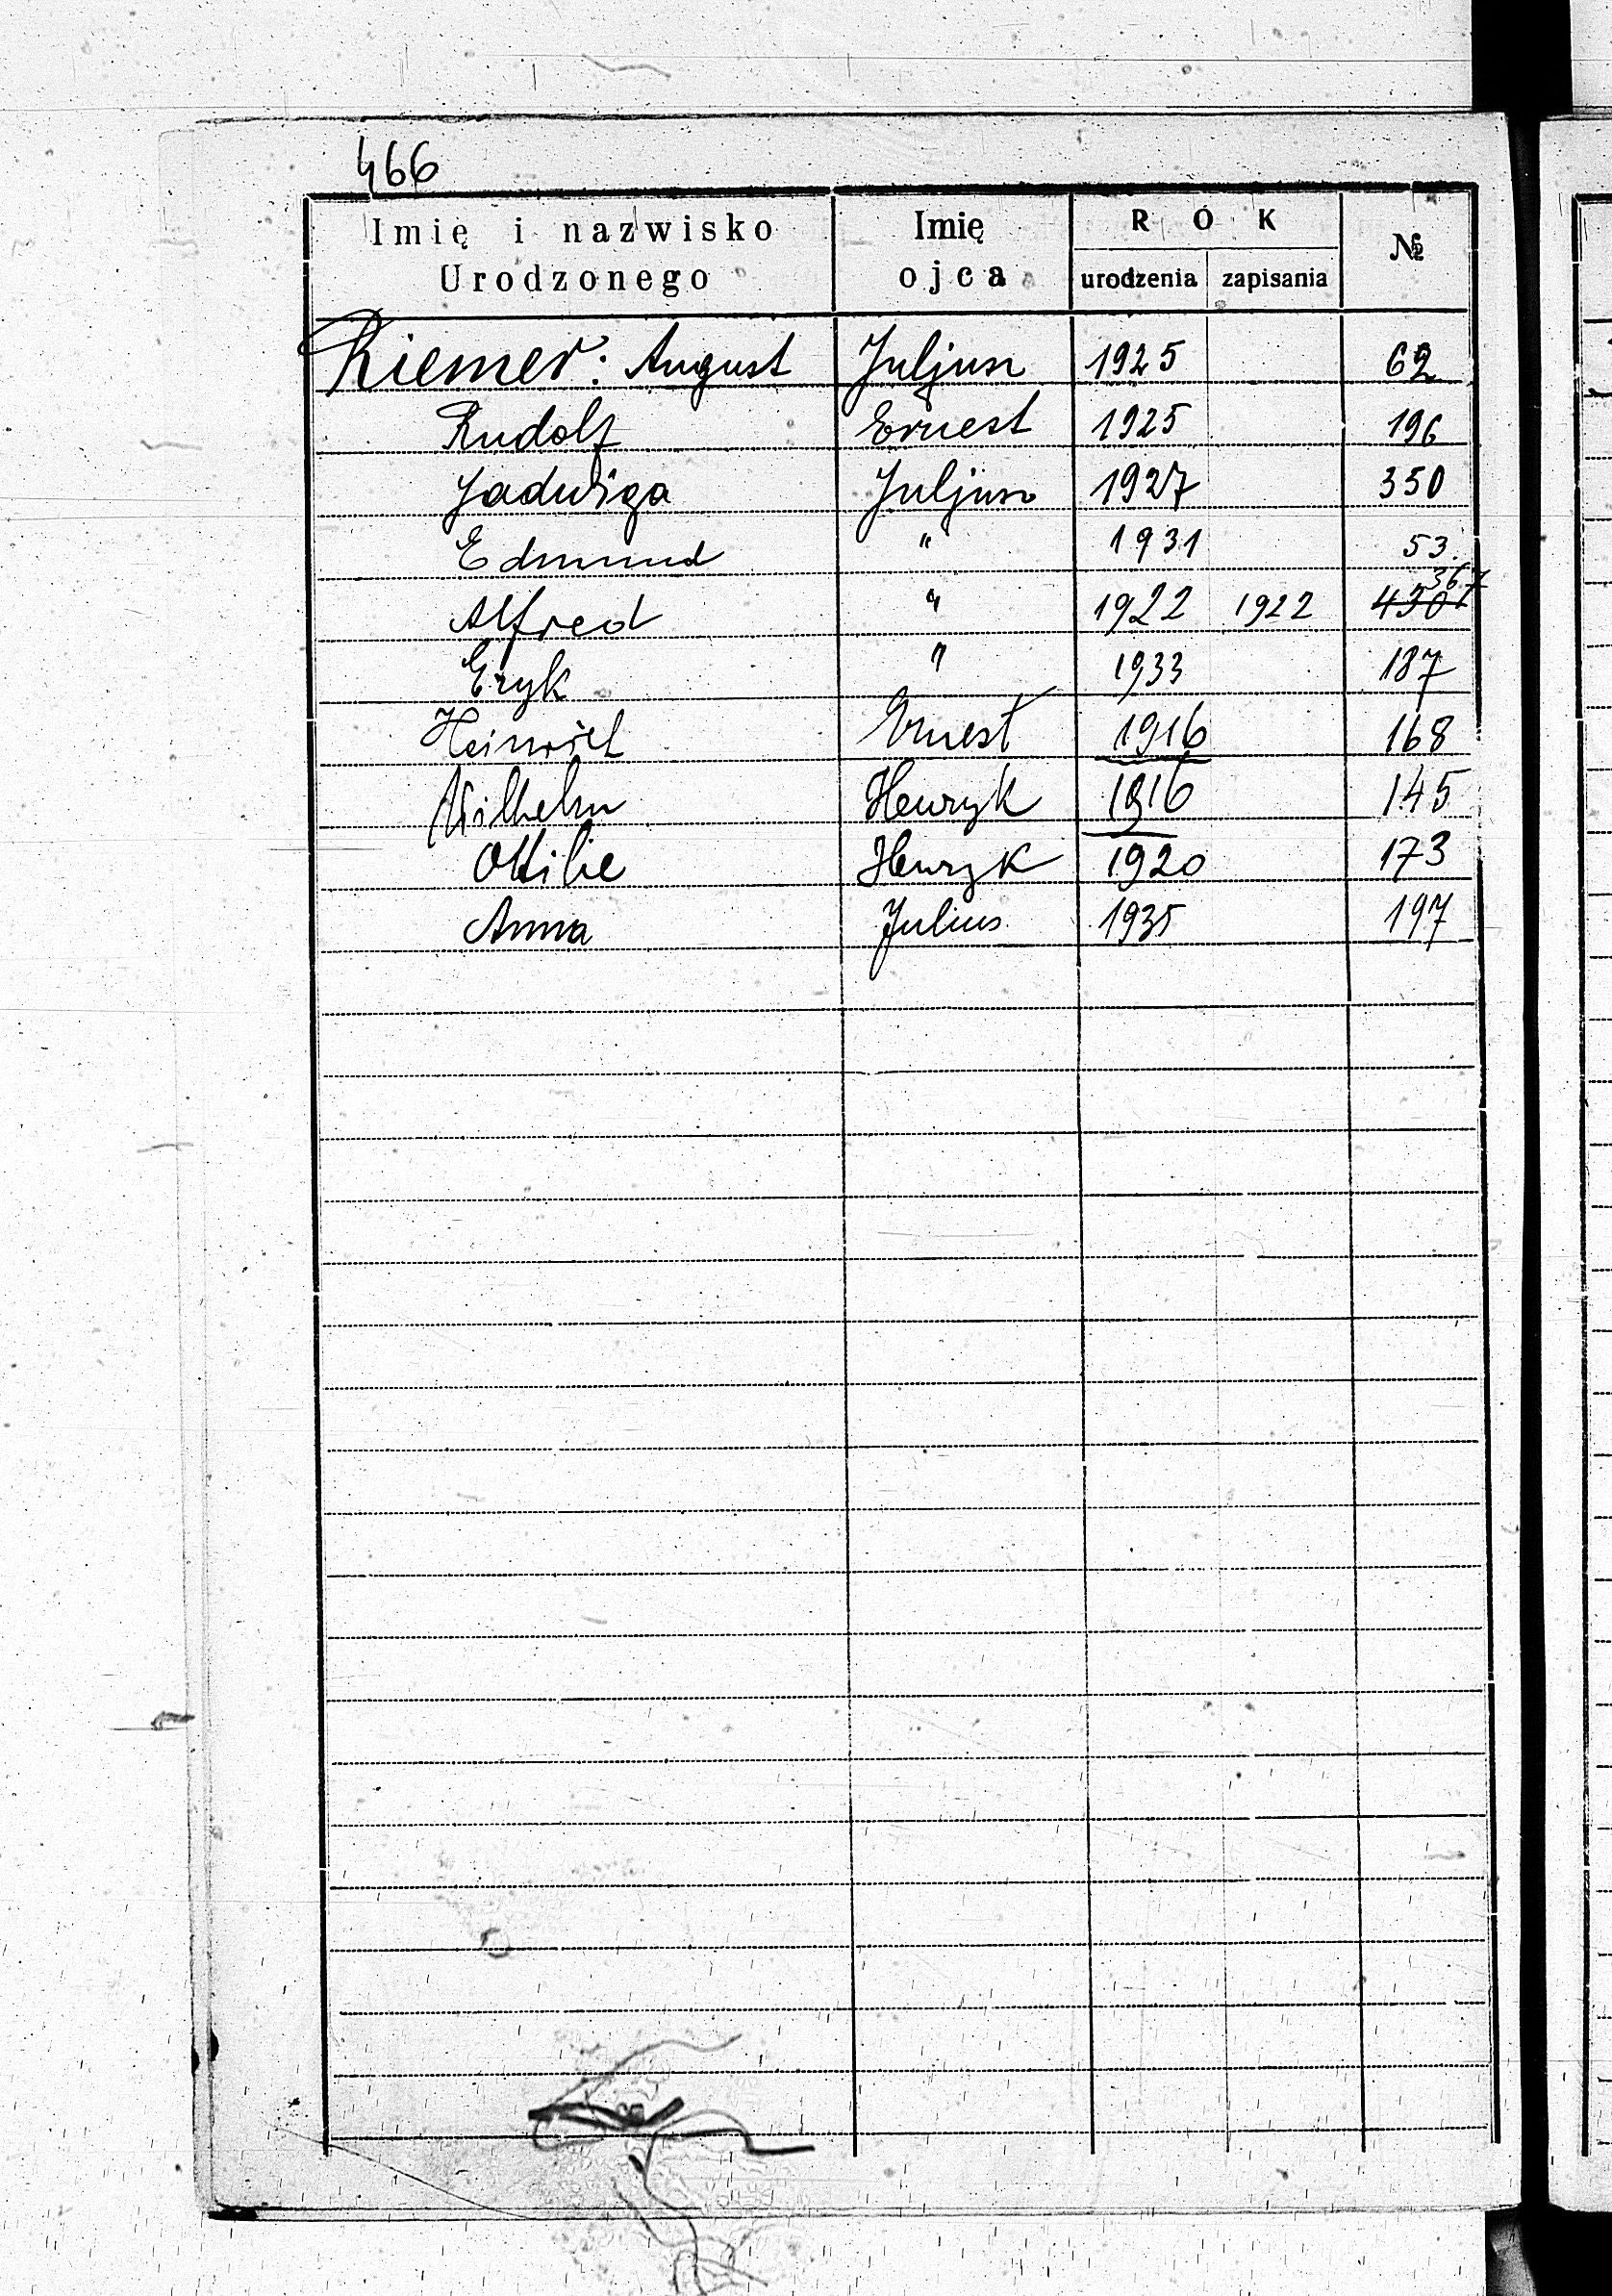 466
Imię i nazwisko Urodzonego Imię ojca ROK urodzenia zapisania №
Riemer: August Juljusz 1925 62
Rudolf Ernest 1925 196
Jadwiga Juljusz 1927 350
Edmund " 1931 53.
367
Alfred " 1922 1922 430
Eryk " 1933 187
Heinrich Ernest 1916 168
Wilhelm Henryk 1916 145
Ottilie Henryk 1920 173
Anna Julius 1935 197